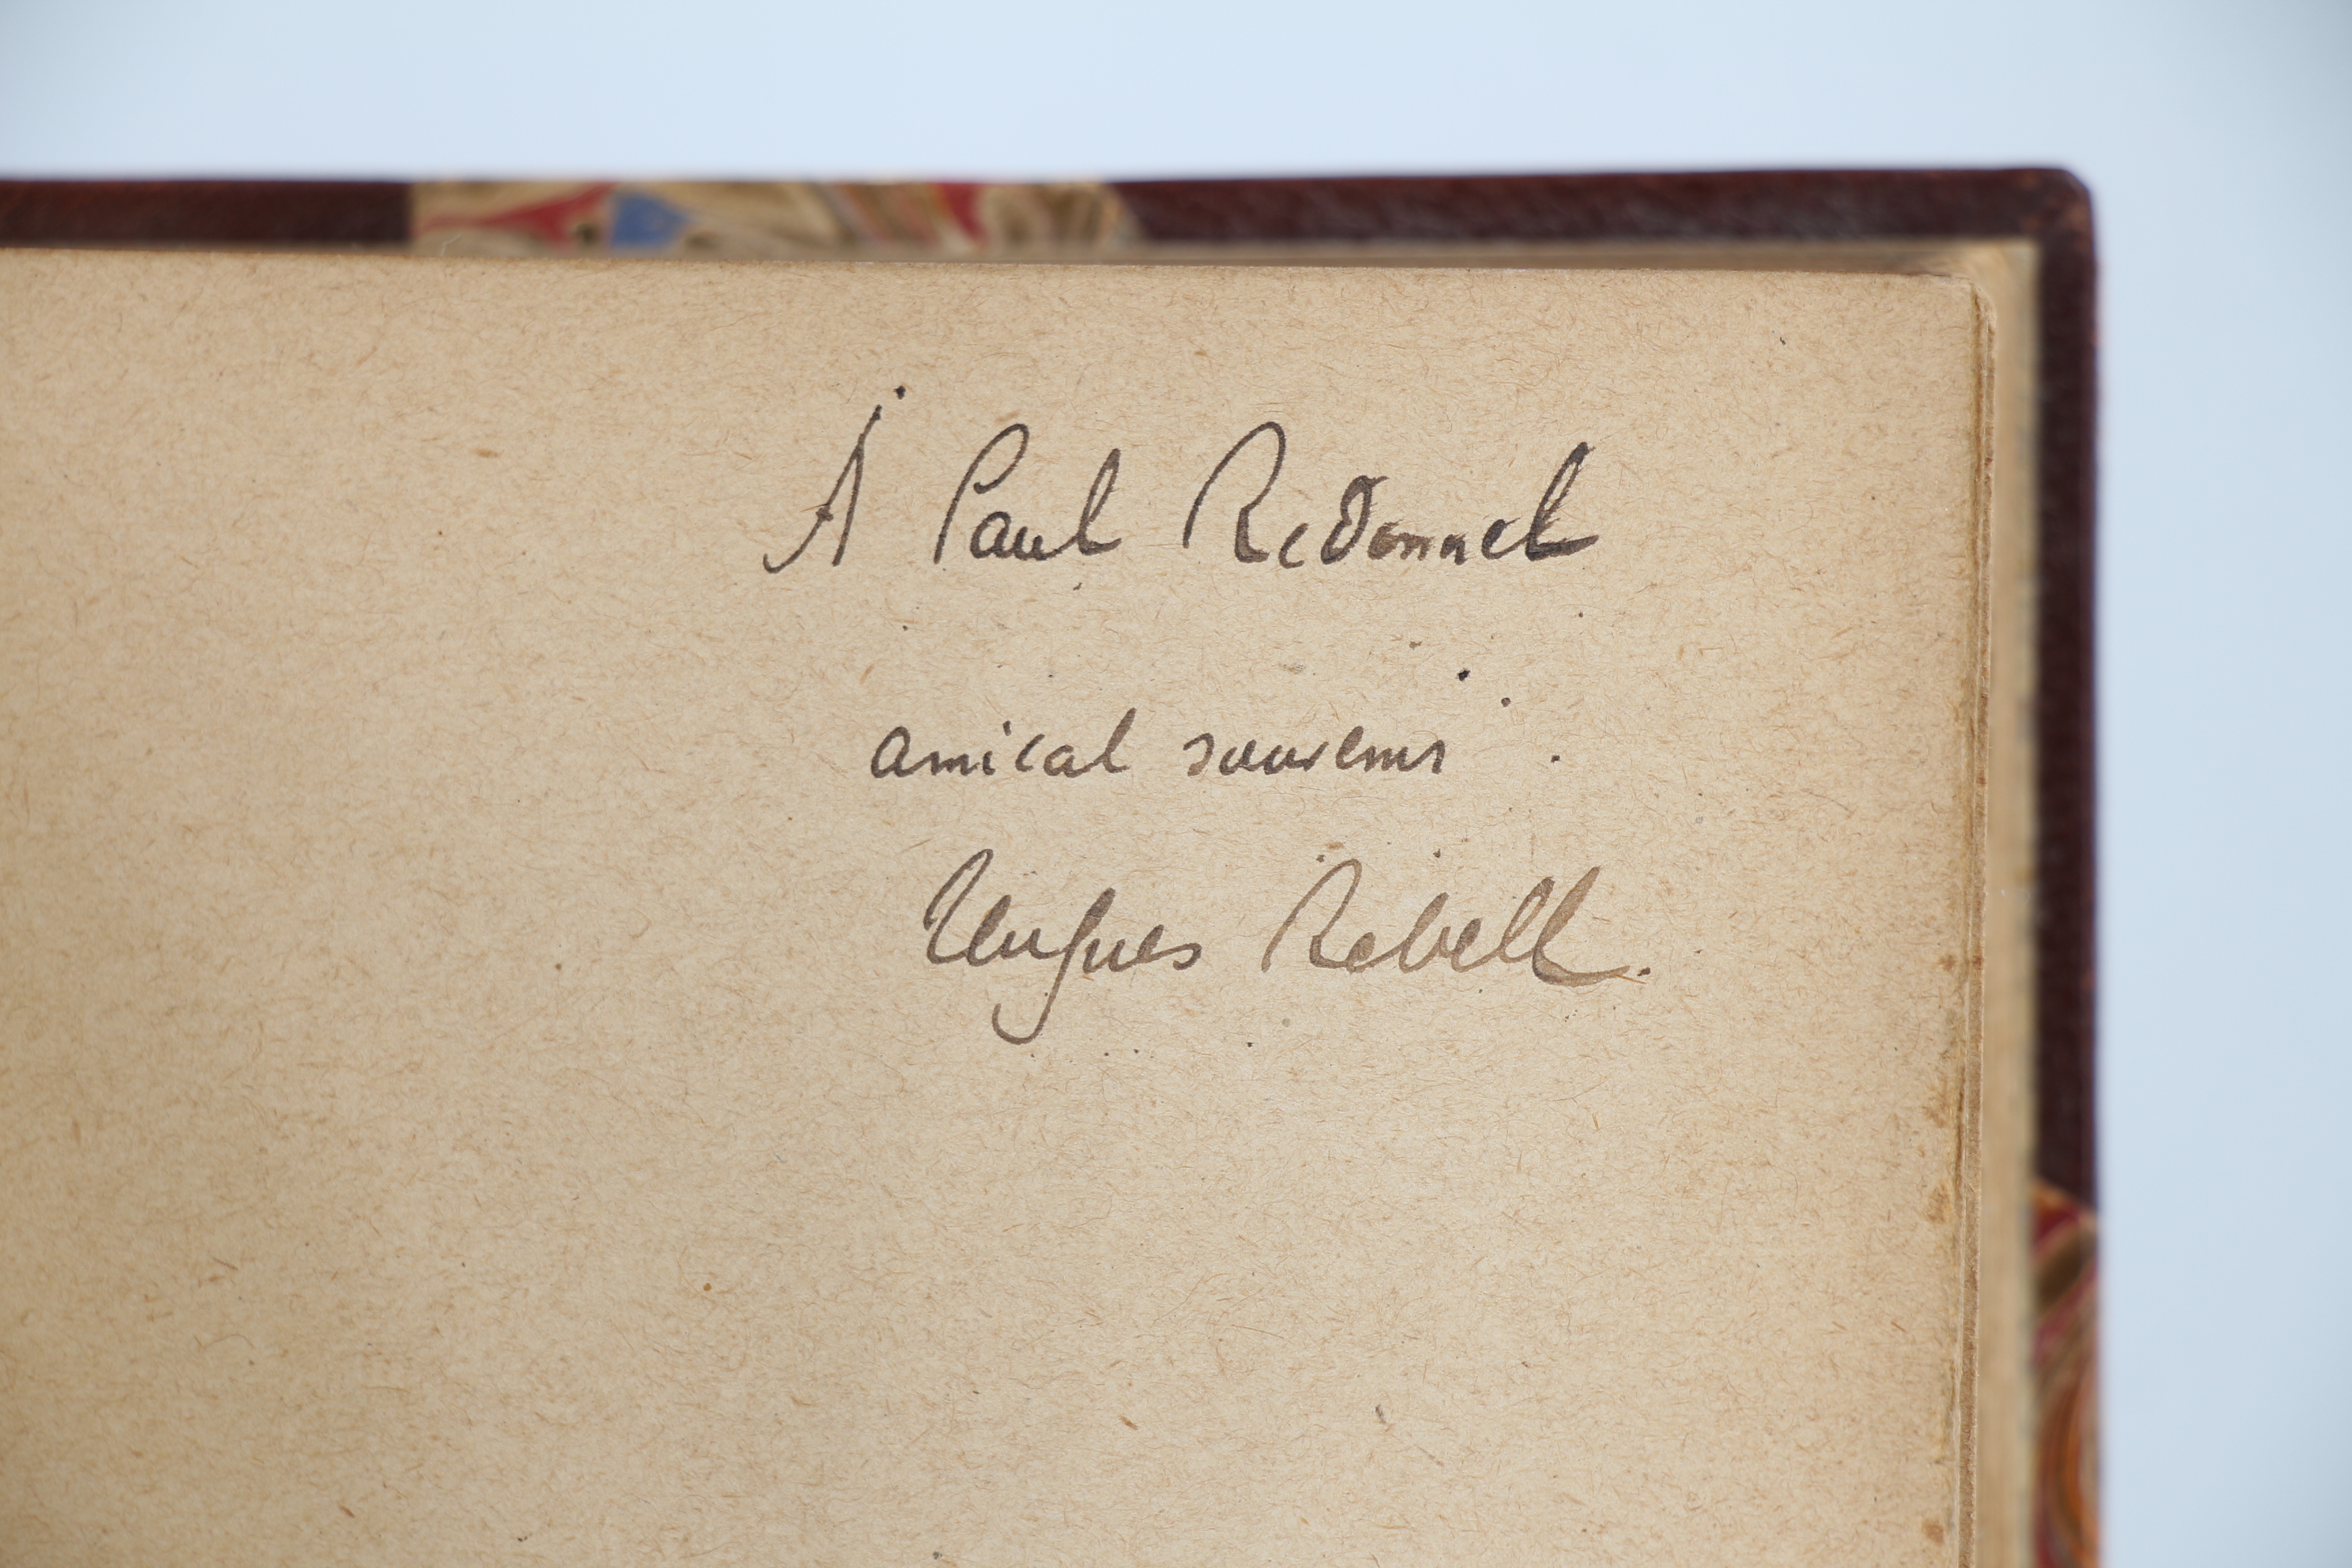 À Paul Redonnel
amical souvenir.
Hugues Rebell.